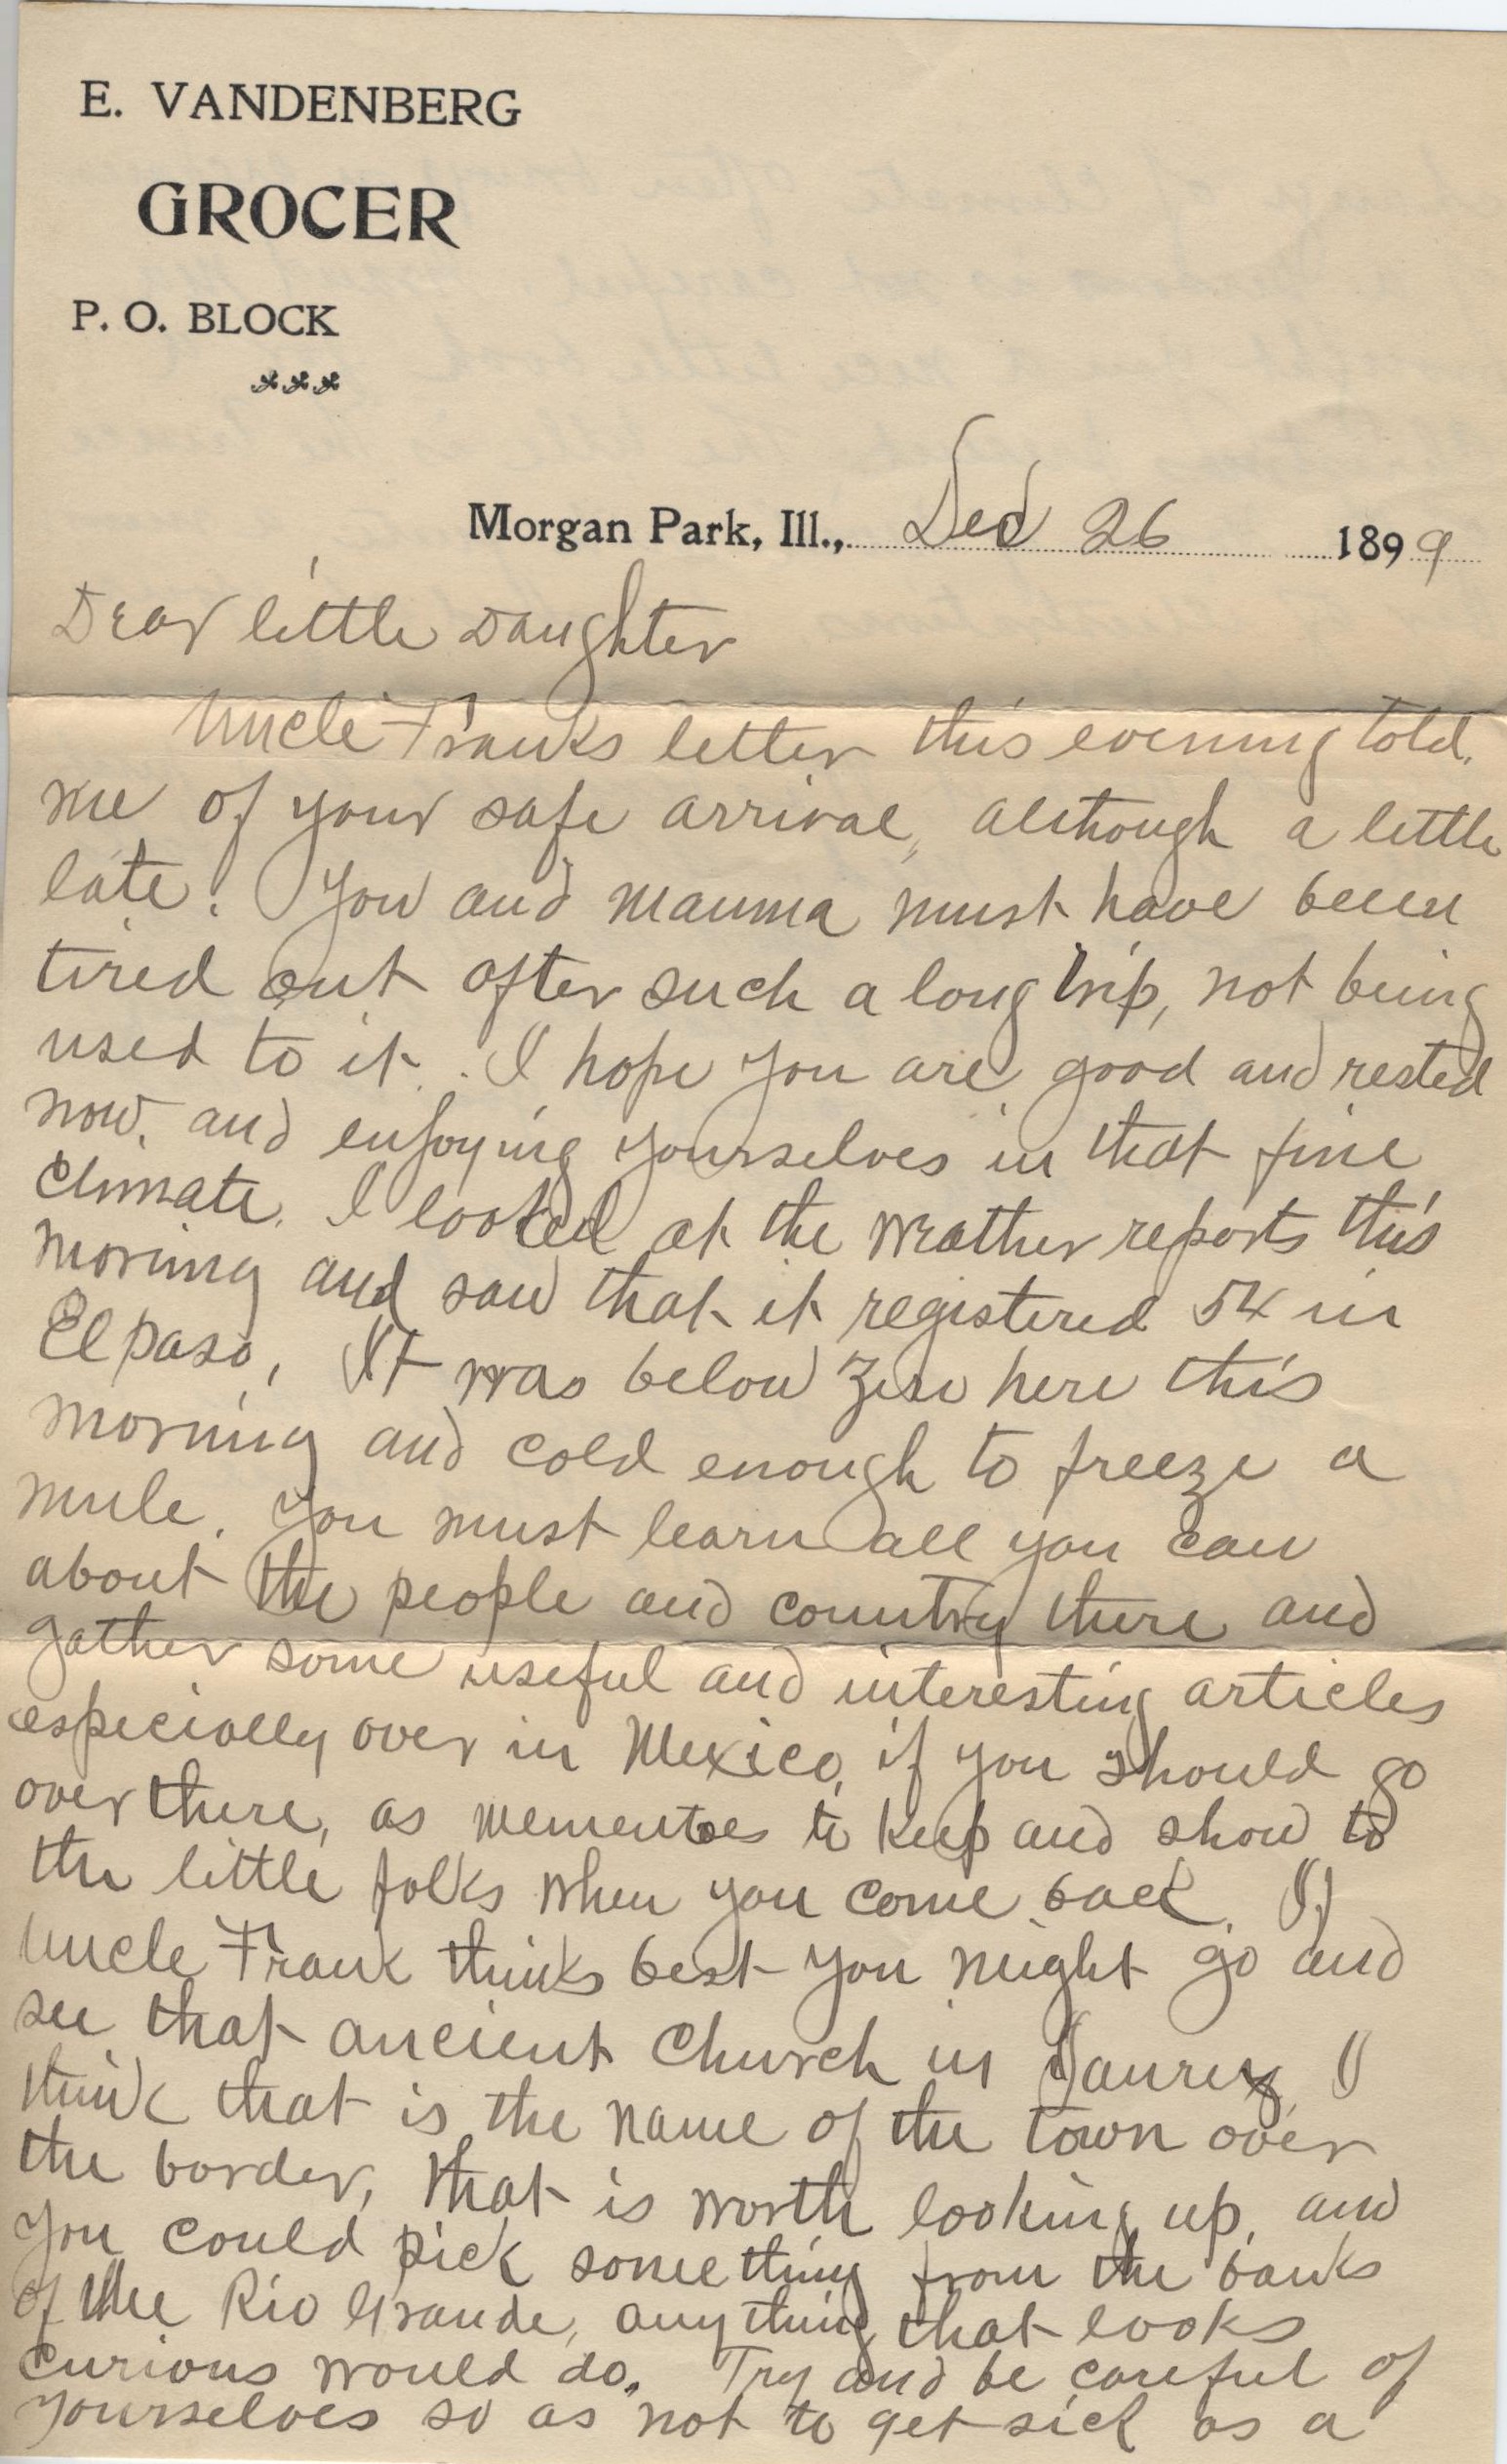 E. VANDENBERG
GROCER
P. O. BLOCK
Morgan Park, Ill., Dec 26 1899
Dear little Daughter
Uncle Franks letter this evening told
me of your safe arrival, although a little
late. You and mamma must have been
tired out after such a long trip, not being
used to it. I hope you are good and rested
now. and enjoying yourselves in that fine
Climate. I looked at the weather reports this
morning and saw that it registered 54 in
El paso, It was below zero here this
morning and cold enough to freeze a
mule. You must learn all you can
about the people and country there and
gather some useful and interesting articles
especially over in Mexico, if you should go
over there, as mementoes to keep and show to
the little folks when you come back. If
Uncle Frank thinks best you might go and
see that ancient Church in Jaurez, I
think that is the name of the town over
the border, that is worth looking up, and
you could pick something from the banks
of the Rio Grande, any thing that looks
curious would do. Try and be careful of
yourselves so as not to get sick as a